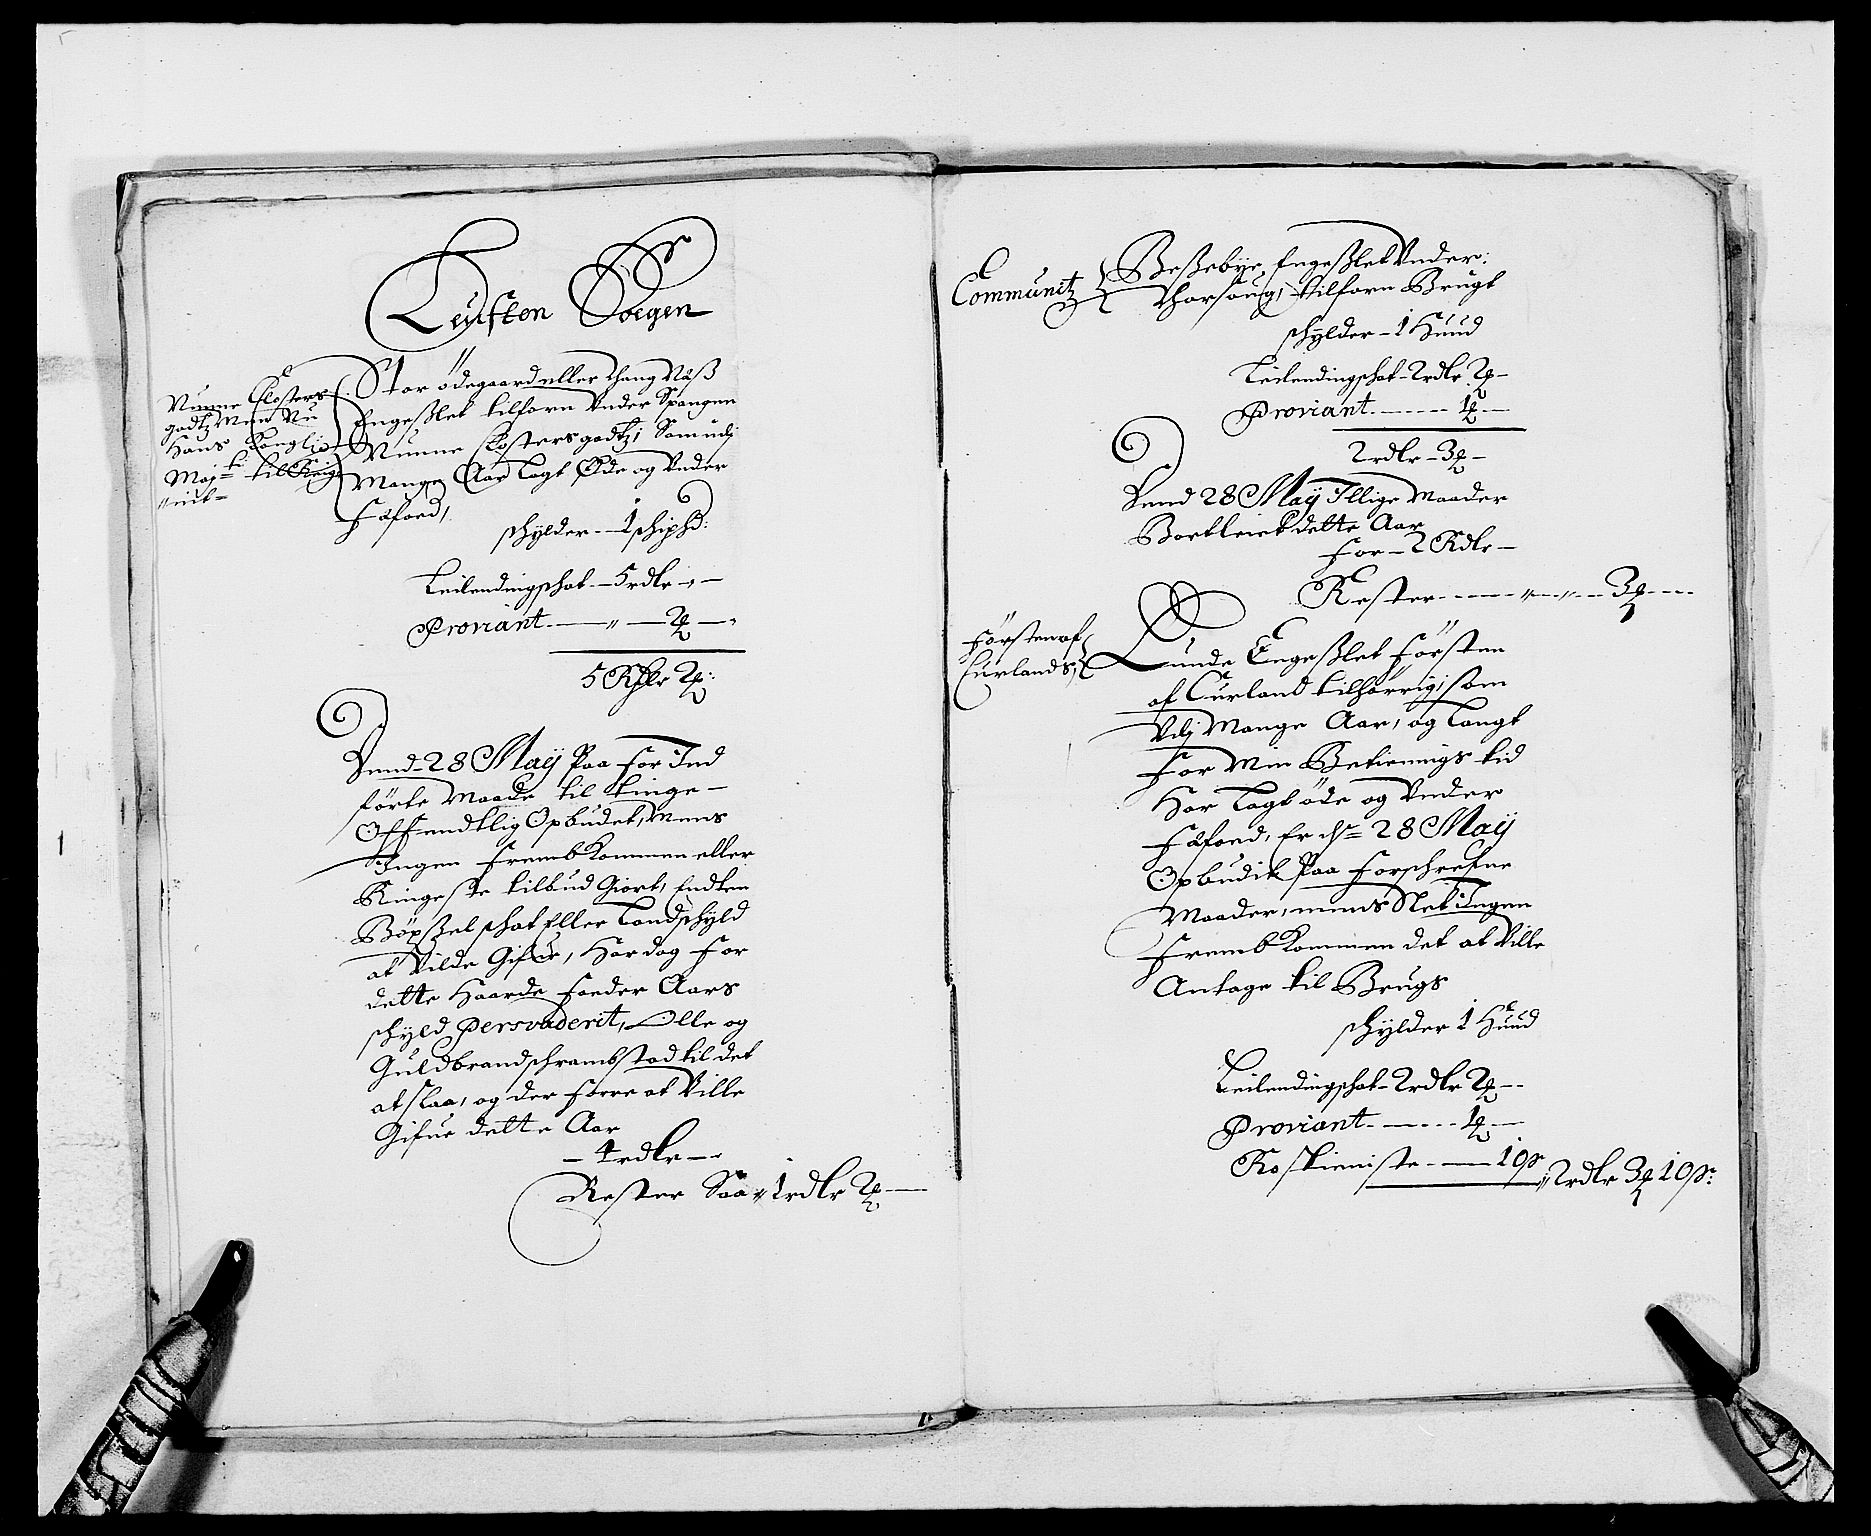 Leusten Sogen
Nunne Closters
godtz Men Nu
Hans Konglig
Maj:ts til
Stor ödegaard eller Thang Næß
Engeßlet tilforn Under Spangen
Nunne Closters godtz, Som udj
Mange Aar Lagt Øde og Under
Fæfoed,
schylder - 1 schipd:
Leilendingschat - 5 rdlr - " -
Proviant - " - 2
5 Rdlr 2
Dend 28 May Paa for Ind
förte Maade til tinge -
Offendtlig Opbudet, Mens
Ingen frembkommen eller
Ringeste tilbud Giort, Endten
Böxsel schat Eller Landschyld
at Vilde Gifue, Har dog for
dette Haarde foeder Aars
schyld Persvaderit, Olle og
Guldbrand schrambstad til det
at slaa, og der foere at Ville
Gifue dette Aar
- 4 rdlr -
Rester Saa " 1 rdlr 2
Communitz
Beßebye, Engeßlet Under:
Thorsoug, tilforn Brugt
schylder - 1 Huud
Leilendingschat - 2 rdlr 2 -
Proviant - 1 -
2 rdlr - 3 -
Dend 28 May Illige Maader
Bortleiet dette Aar
for - 2 Rdlr -
Rester - " - " - 3
Förstenaf
Curlands,
Lunde Engeßlet Försten
af Curland tilhörrig, som
Udj Mange Aar, og Langt
for Min Betienings tid
Har Lagt öde og Under
Fæfoed, Er d: 28 May
Opbudit Paa forschrefne
Maader, mens Slet Ingen
frembkommen det at Ville
Antage til Brugs
schylder 1 Huud
Leilendingschat - 2 rdlr 2 -
Proviant - 1 -
Rostieniste - 10 s
" 2 rdlr 3 10 s: